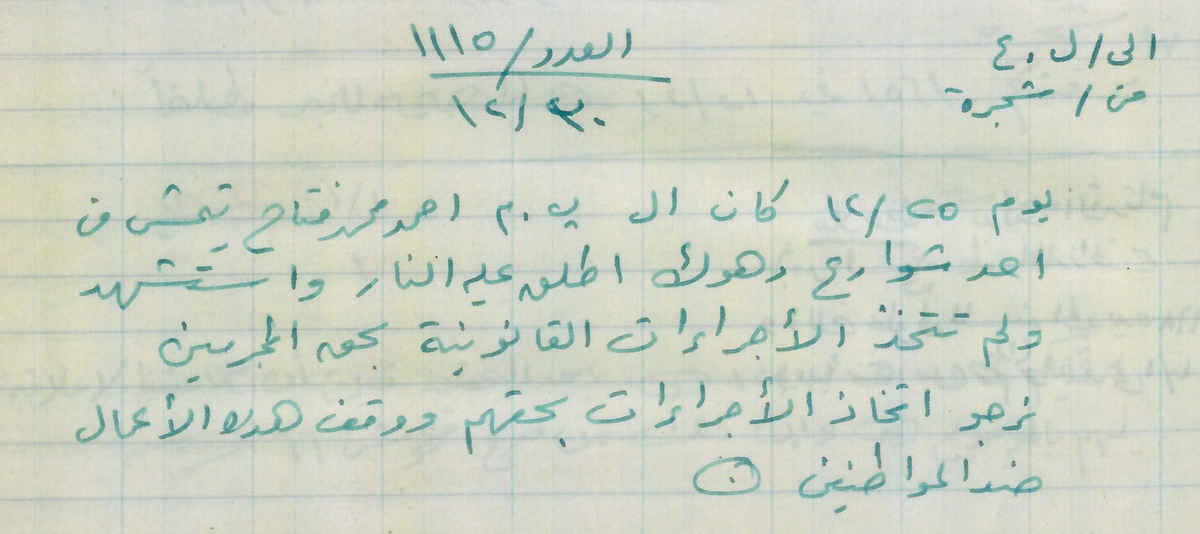 الى / ل . ٤
من / شجرة
العدد / ١١١٥
١٢/٣٠
يوم ١٢/٢٥ كان ال پ . م احمد محمد فتاح يتمشى في
احد شوارع دهوك اطلق عليه النار واستشهد
ولم تتخذ الأجراءات القانونية بحق المجرمين
نرجو اتخاذ الأجراءات بحقهم ووقف هذه الأعمال
ضد المواطنين